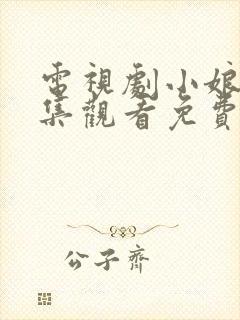 電視劇小娘
集觀看免費
公子齊